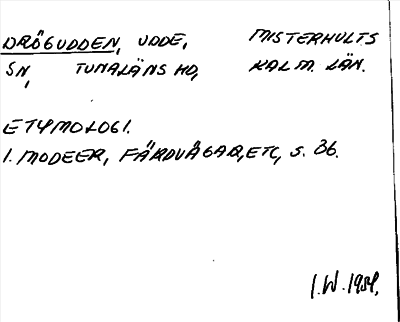 DRÖGUDDEN, UDDE, MISTERHULTS
SN, TUNALÄNS HD, KALM. LÄN.
ETYMOLOGI.
I. MODEER, FÄRDVÄGAR, ETC, S. 36.
I.W. 1954.